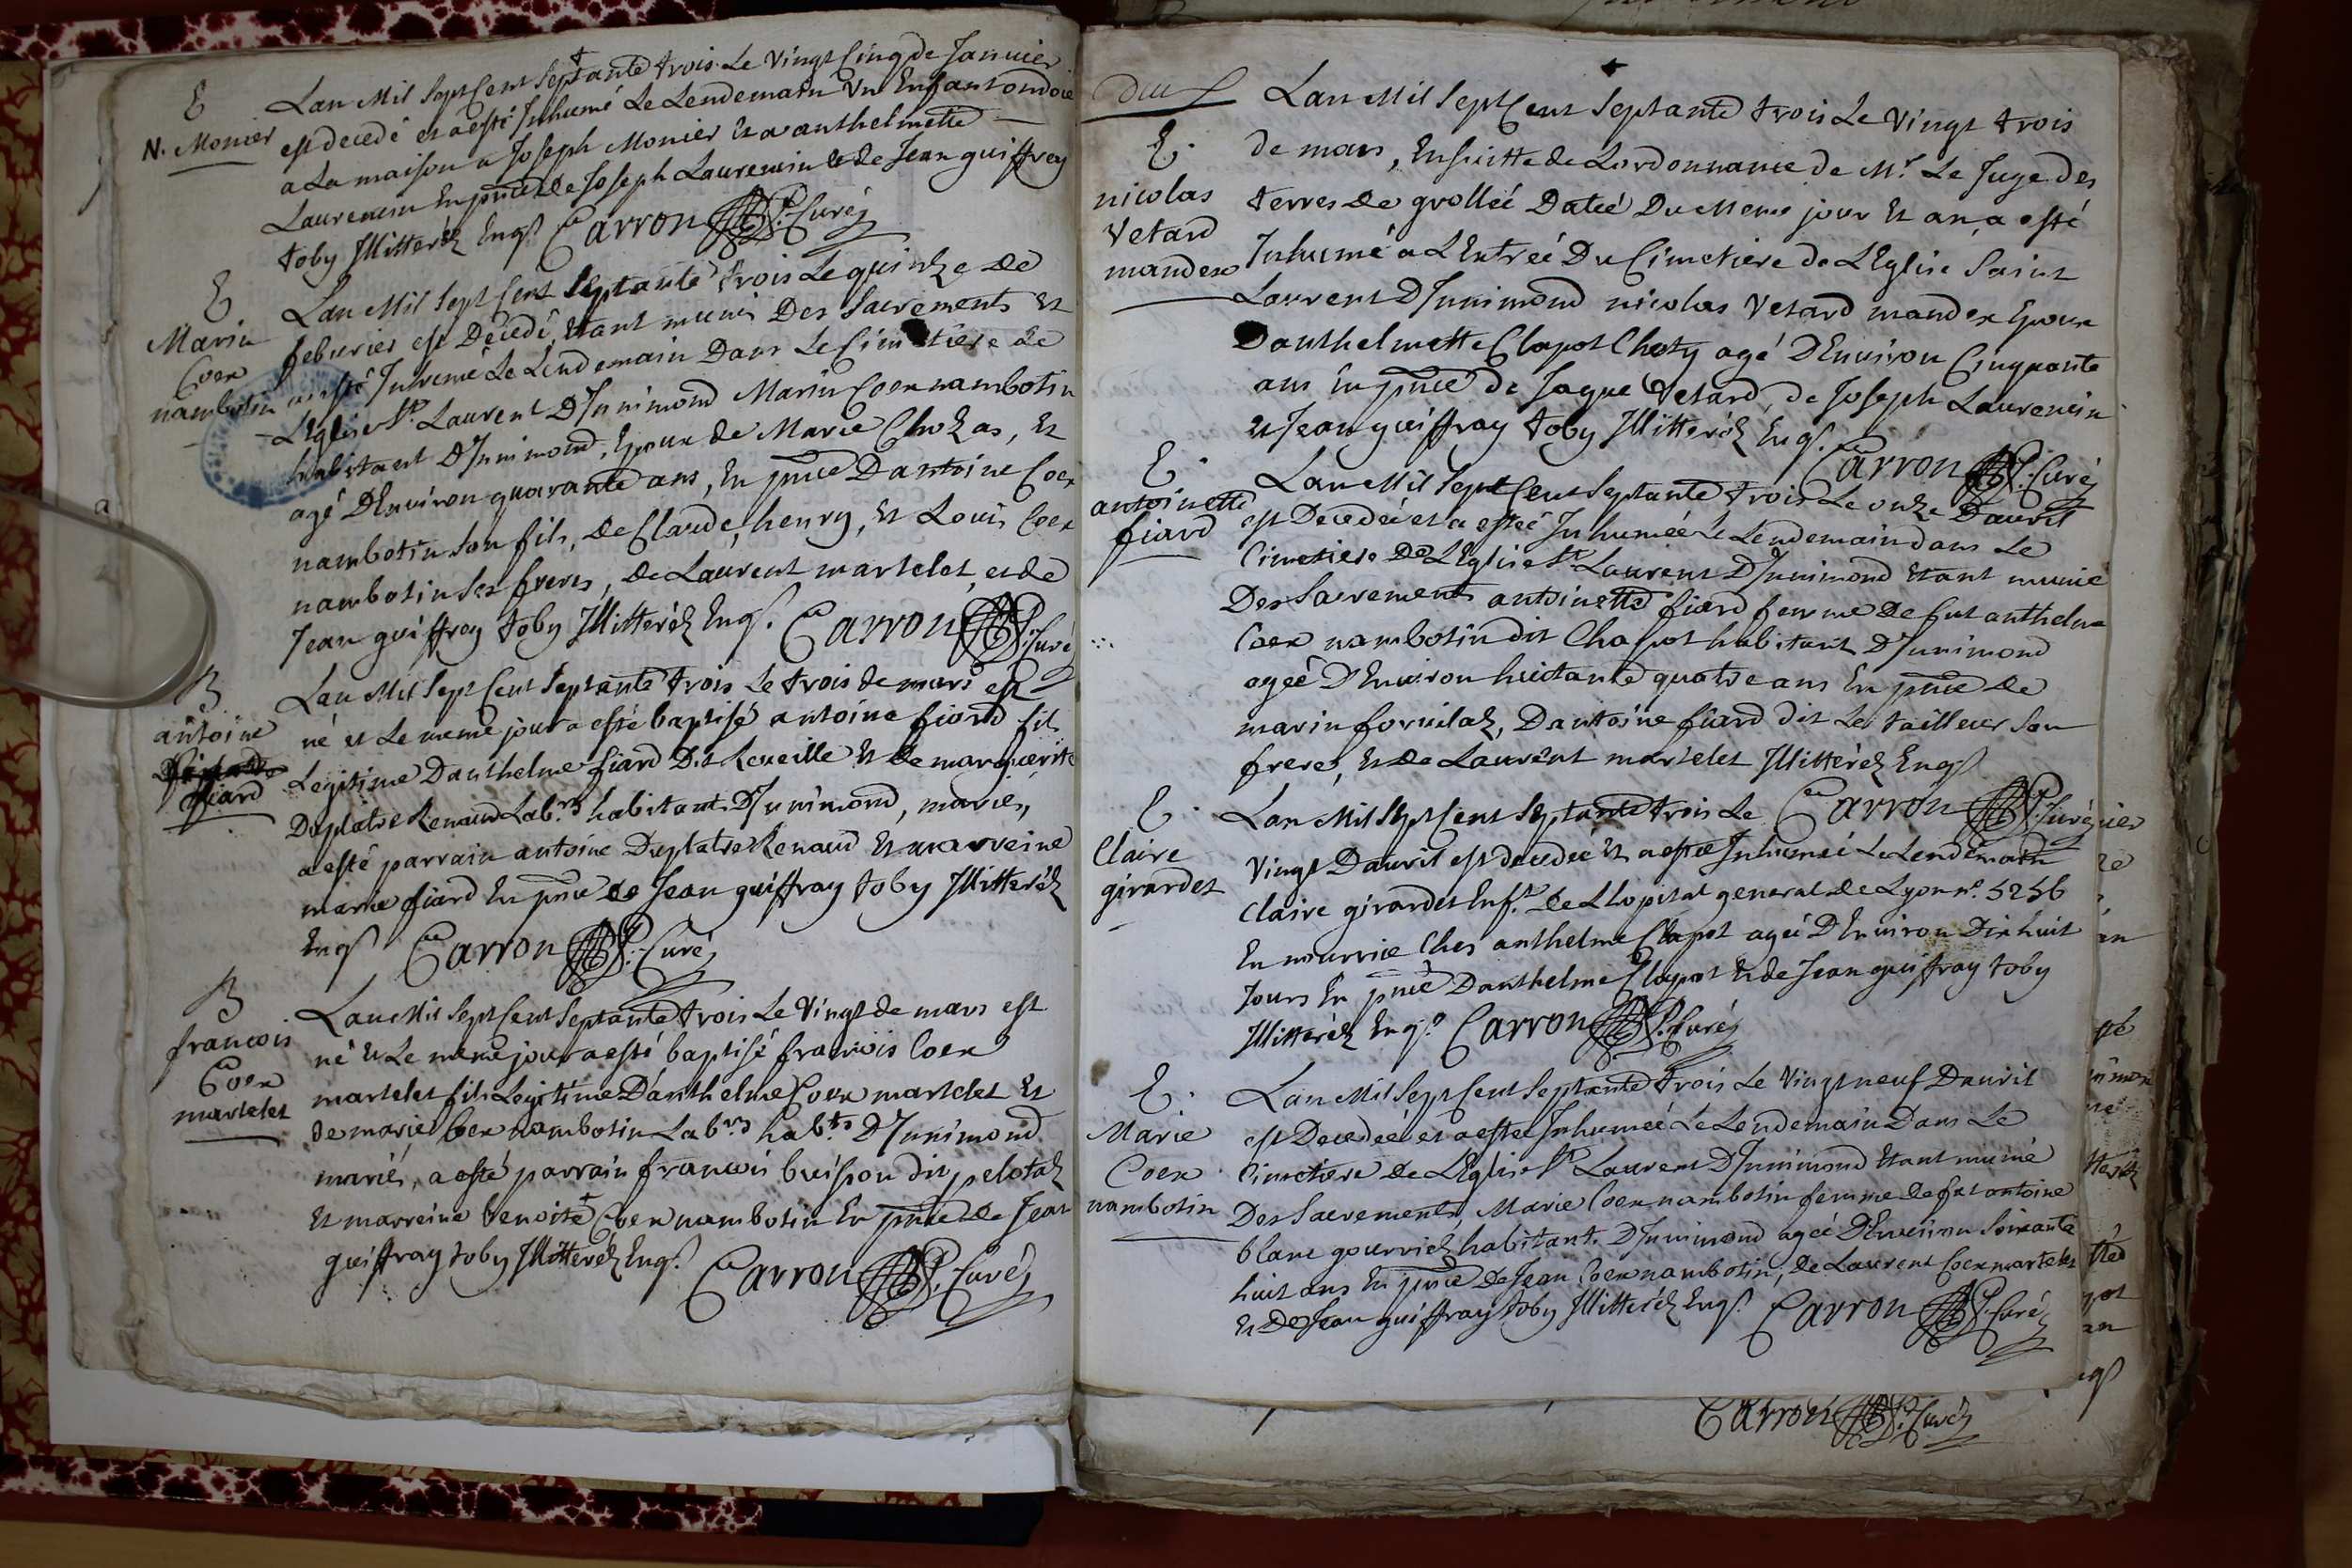 E
N. Monier
Lan Mil Sept Cent Septante trois Le Vingt Cinq de Janvier
est decedé et a esté Inhumé Le Lendemain Un Enfant ondoié
a La maison a Joseph Monier et a anthelmette
Laurencin En pnce de Joseph Laurencin et de Jean guiffray
toby Illitteréz Enqs Carron Curé
E
Marin
Coex
nambotin
Lan Mil Sept Cent Septante trois Le quinze de
feburier est Decedé, Etant muni Des Sacrements et
a esté Inhumé Le Lendemain Dans Le Cimetiere de
L'Eglise St. Laurent D'Innimond Marin Coex nambotin
habitant D'Innimond, Epoux de Marie Chozas, Et
agé D'Environ quarante ans, En pnce Dantoine Coex
nambotin son fils, de Claude, henry, Et Louis Coex
nambotin ses freres, de Laurent martelet, et de
Jean guiffray toby Illitteréz Enqs. Carron Curé
B
antoine
fiard
Lan Mil Sept Cent Septante trois Le trois de mars est
né et Le meme jour a esté baptisé antoine fiard fils
Legitime Danthelme fiard Dit Reveille et de marguerite
Duplatre Renaud Labrs habitants D'Innimond, mariés,
a esté parrain antoine Duplatre Renaud Et marreine
marie fiard En pnce de Jean guiffray toby Illitteréz
Enqs Carron Curé
B
francois
Coex
martelet
Lan Mil Sept Cent Septante trois Le Vingt de mars est
né et Le meme jour a esté baptisé francois Coex
martelet fils Legitime Danthelme Coex martelet Et
de marie Coex nambotin Labrs habts D'Innimond
mariés, a esté parrain francois buisson dit pelotaz
et marreine benoite Coex nambotin En pnce de Jean
guiffray toby Illitteréz Enqs. Carron Curé
E.
nicolas
Vetard
mandex
Lan Mil Sept Cent Septante trois Le Vingt trois
de mars, Ensuitte de Lordonnance de Mr. Le Juge des
terres de grollée Datée Du Meme jour Et an, a esté
Inhumé a L'Entrée Du Cimetiere de L'Eglise Saint
Laurent D'Innimond nicolas Vetard mandex Epoux
Danthelmette Clapot Choty agé D'Environ Cinquante
ans En pnce de Jaque Vetard, de Joseph Laurencin
et Jean guiffray toby Illitteréz Enqs.
Carron Curé
E.
antoinette
fiard
Lan Mil Sept Cent Septante trois Le onze Dauril
est Decedée et a estée Inhumée Le Lendemain dans Le
Cimetiere De L'Eglise St Laurent D'Innimond Etant munie
Des Sacrements antoinette fiard femme De fut anthelme
Coex nambotin dit Chapot habitant D'Innimond
agée D'Environ huitante quatre ans En pnce de
marin fornilaz, Dantoine fiard dit Le tailleur son
frere, Et de Laurent martelet Illitteréz Enqs
Carron Curé
E.
Claire
girardet
Lan Mil Sept Cent Septante trois Le
Vingt Dauril est decedée et a estée Inhumée Le Lendemain
Claire girardet Enft. de L'hopital general de Lyon no. 5256
En nourrice Ches anthelme Clapot agée D'Environ Dix huit
Jours En pnce Danthelme Clapot Et de Jean guiffray toby
Illitteréz Enqs Carron Curé
E.
Marie
Coex
nambotin
Lan Mil Sept Cent Septante trois Le Vingt neuf Dauril
est Decedée et a estée Inhumée Le Lendemain Dans Le
Cimetiere de L'Eglise St Laurent D'Innimond Etant munie
Des Sacrements, Marie Coex nambotin femme de fut antoine
blanc gourriez habitant D'Innimond agée D'Environ Soixante
huit ans En pnce De Jean Coex nambotin, de Laurent Coex martelet
et De Jean guiffray toby Illitteréz Enqs. Carron Curé
Carron Curé